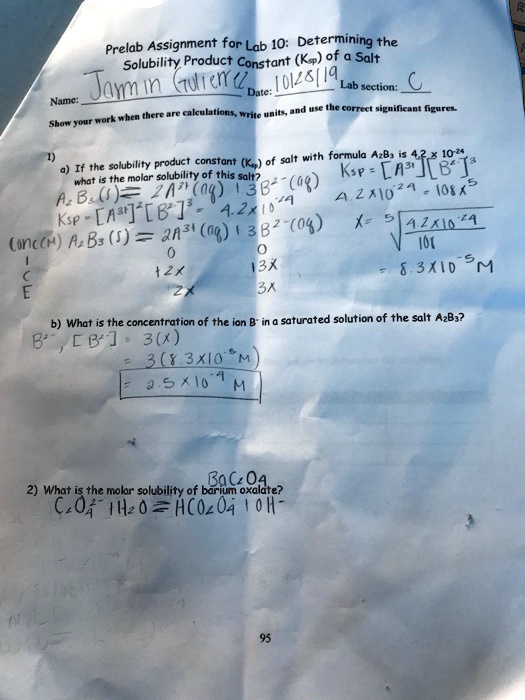 Prelab Assignment for Lab 10: Determining the
Solubility Product Constant (Ksp) of a Salt
Name: Date: 10/28/19 Lab section: C
Show your work when there are calculations, write units, and use the correct significant figures.
1)
a) If the solubility product constant (Ksp) of salt with formula A₂B₃ is 4.2 x 10⁻²⁴
what is the molar solubility of this salt?
Ksp = [A³⁺]²[B²⁻]³
A₂B₃(s) ⇌ 2A³⁺(aq) + 3B²⁻(aq)
4.2x10⁻²⁴ = 108x⁵
Ksp = [A³⁺]²[B²⁻]³ = 4.2x10⁻²⁴
X = ⁵√4.2x10⁻²⁴
108
Conc(M) A₂B₃(s) ⇌ 2A³⁺(aq) + 3B²⁻(aq)
I 0 0
C +2X +3X
= 8.3X10⁻⁵ M
E 2X 3X
b) What is the concentration of the ion B⁻ in a saturated solution of the salt A₂B₃?
B²⁻, [B²⁻] = 3(x)
= 3(8.3x10⁻⁵ M)
= 2.5 x 10⁻⁴ M
BaC₂O₄
2) What is the molar solubility of barium oxalate?
C₂O₄²⁻ + H₂O ⇌ HCO₂O₄⁻ + OH⁻
95